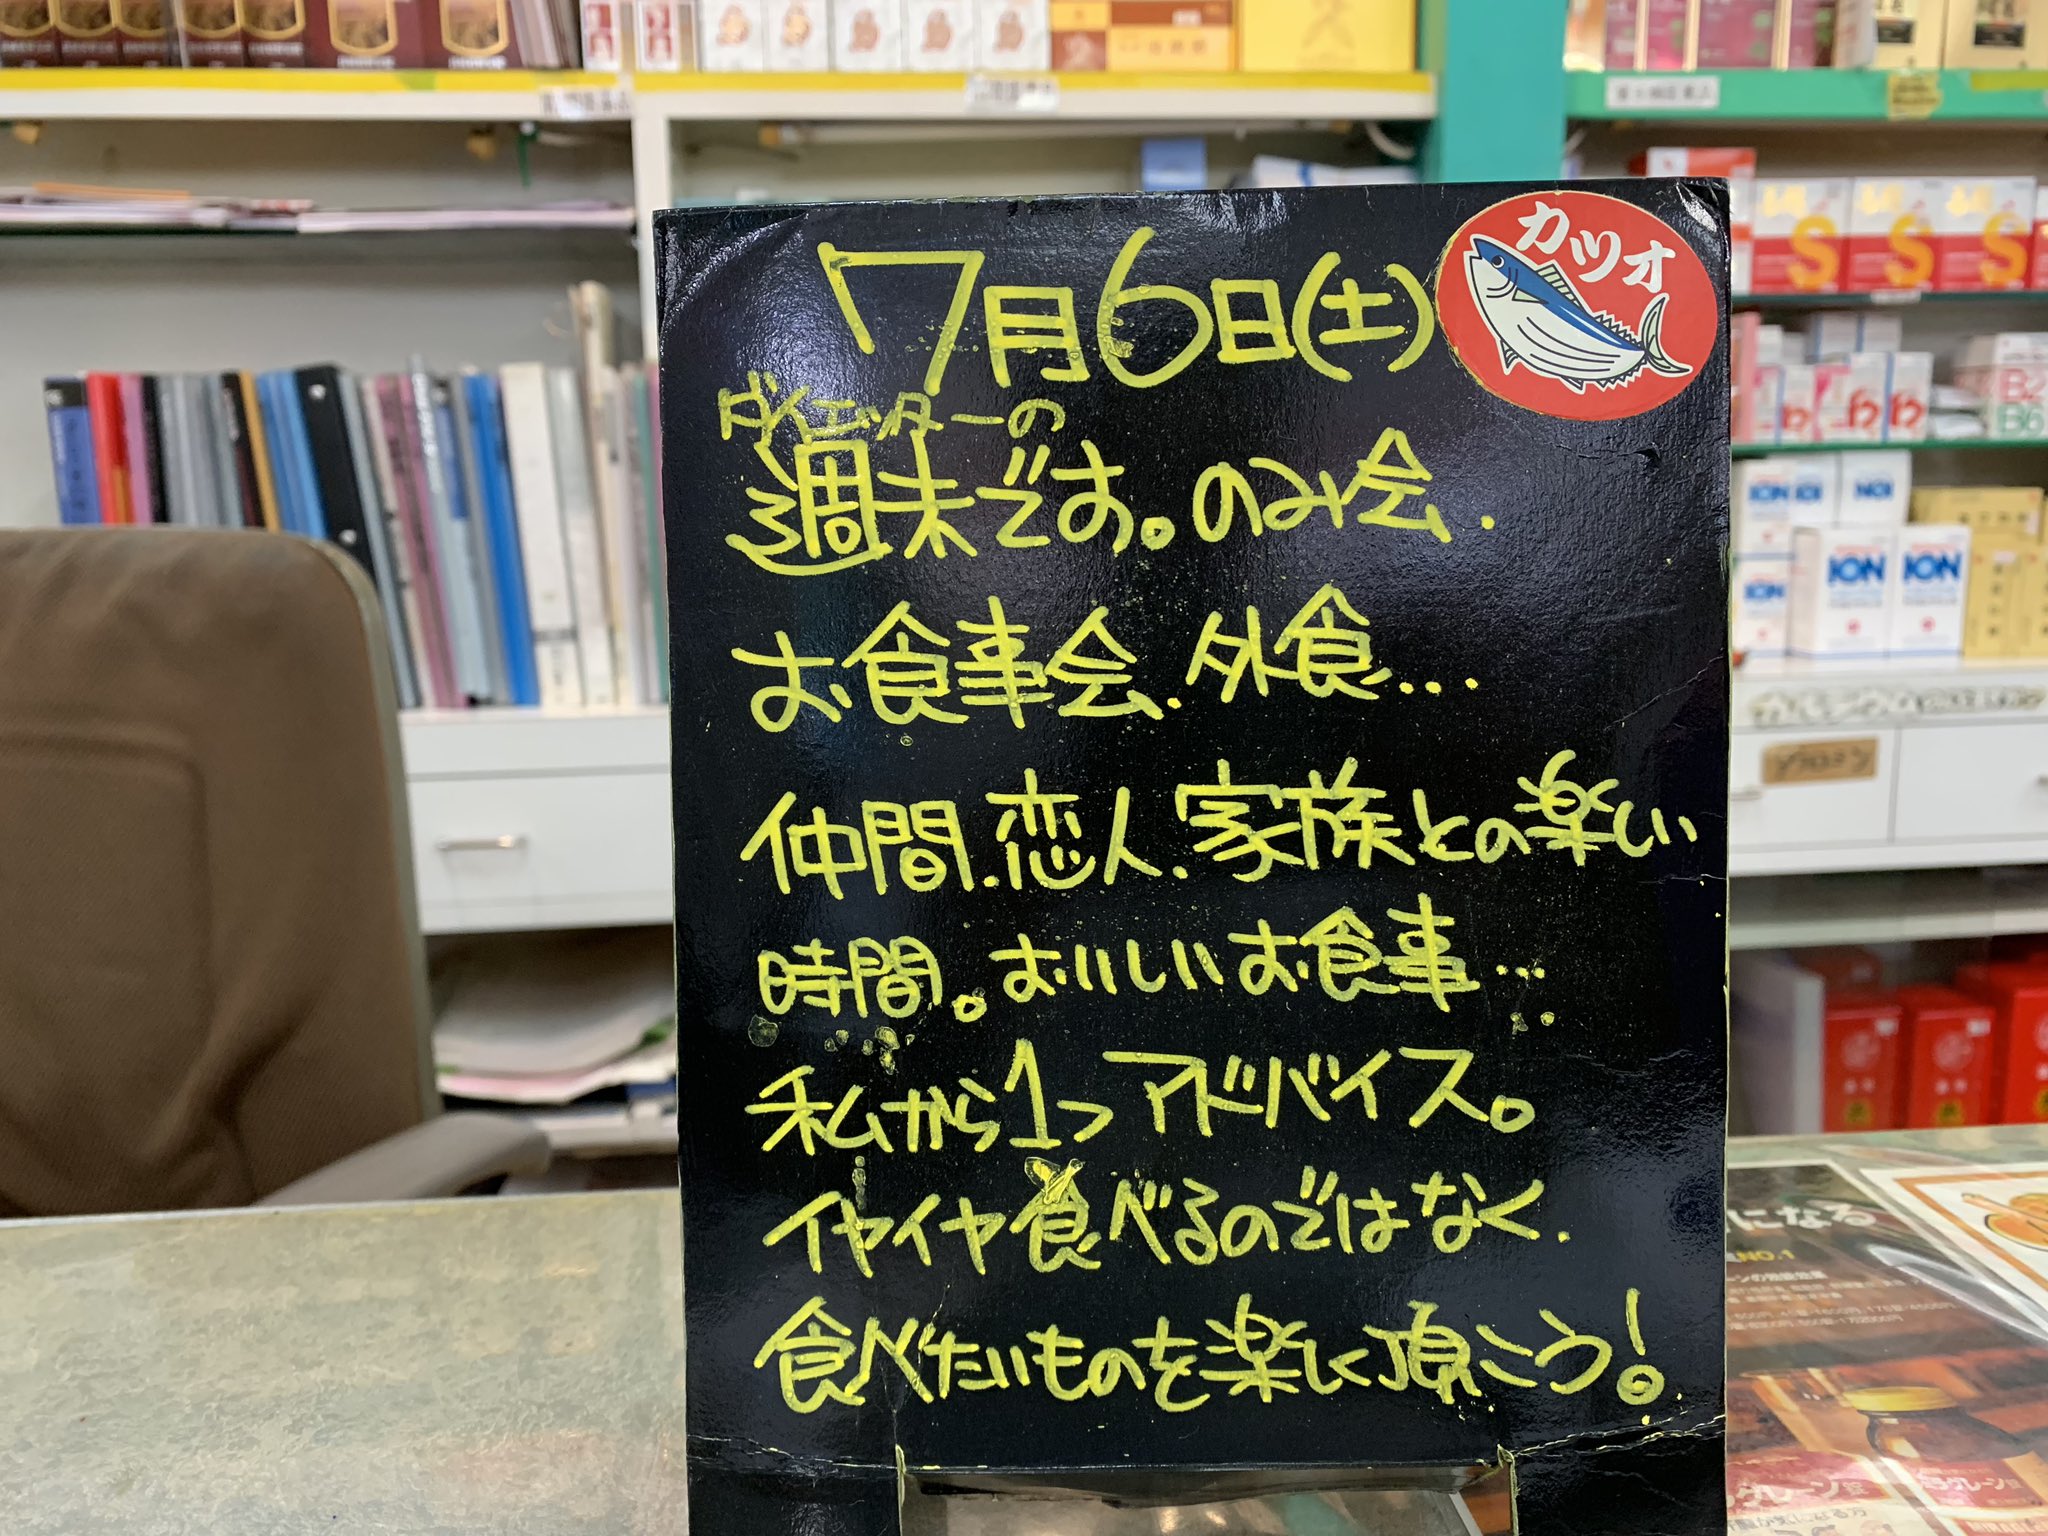 7月6日(土)
カツオ
ダイエッターの
週末です。のみ会.
お食事会.外食...
仲間.恋人.家族との楽しい
時間。おいしいお食事...
私から1つアドバイス。
イヤイヤ食べるのではなく.
食べたいものを楽しく頂こう!
S
S
S
B2
B6
ION
ION
ION
ION
ION
になる
NO.1